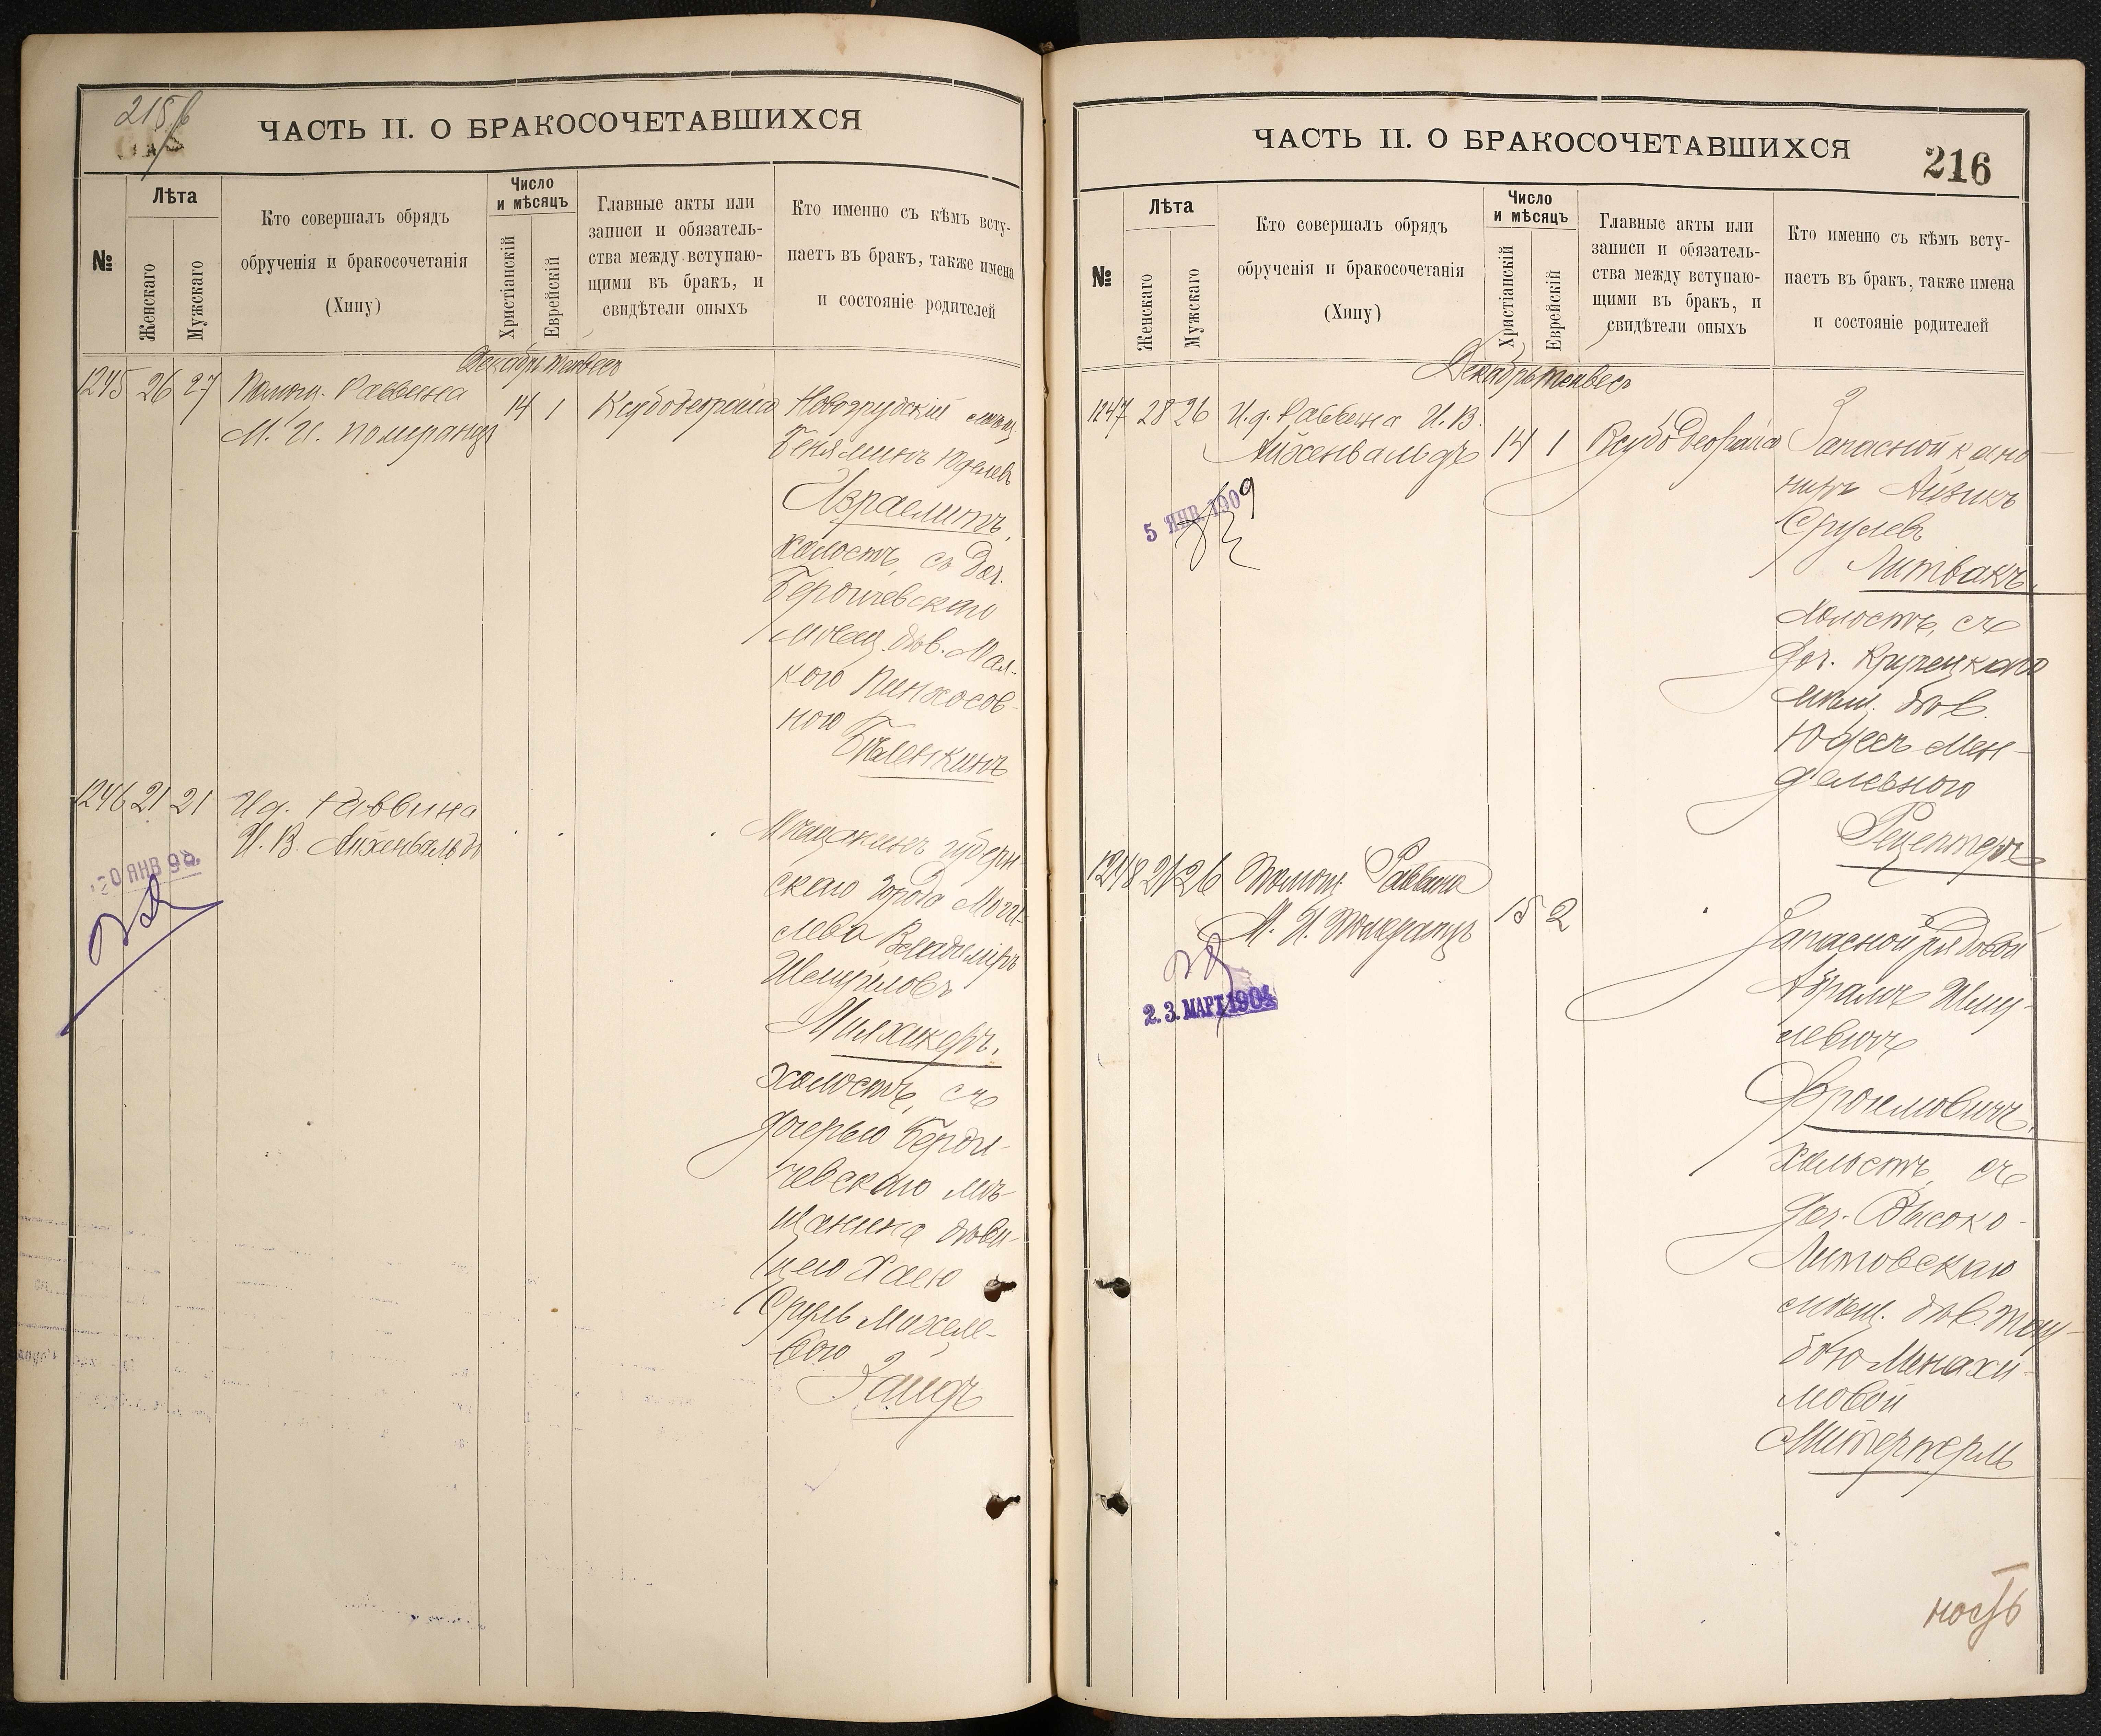 215б
ЧАСТЬ II. О БРАКОСОЧЕТАВШИХСЯ
№
Лѣта
Женскаго
Мужскаго
Кто совершалъ обрядъ
обрученія и бракосочетанія
(Хипу)
Число
и мѣсяцъ
Христіанскій
Еврейскій
Главные акты или
записи и обязатель-
ства между вступаю-
щими въ бракъ, и
свидѣтели оныхъ
Кто именно съ кѣмъ всту-
паетъ въ бракъ, также имена
и состояніе родителей
Декабрь Тейвесъ
1245 26 27
Помощ. Раввина
М. И. Померанцъ
14 1
Ксубо деорайсо
Новогрудскій мѣщ.
Беняминъ Юделевъ
Израелитъ,
холостъ, съ доч.
Бердичевскаго
мѣщ. дѣв. Мал-
кою Пинхосов-
ною
Бѣленкинъ
1246 21 21
И д. Раввина
И. В. Айхенвальдъ
20 ЯНВ 98
Мѣщанинъ губерн-
скаго города Моги-
лева Владиміръ
Шмуйловъ
Милхикеръ.
холостъ, съ
дочерью Берди-
чевскаго мѣ-
щанина дѣви-
цею Хаею
Сруль Михеле-
вою
Зайдъ
ЧАСТЬ II. О БРАКОСОЧЕТАВШИХСЯ
216
№
Лѣта
Женскаго
Мужскаго
Кто совершалъ обрядъ
обрученія и бракосочетанія
(Хипу)
Число
и мѣсяцъ
Христіанскій
Еврейскій
Главные акты или
записи и обязатель-
ства между вступаю-
щими въ бракъ, и
свидѣтели оныхъ
Кто именно съ кѣмъ всту-
паетъ въ бракъ, также имена
и состояніе родителей
Декабрь Тейвесъ
1247 28 26
И. д. Раввина И. В.
Айхенвальдъ
14 1
Ксубо деорайсо
5 ЯНВ. 1909
Запасной кано-
ниръ Айзикъ
Срулевъ
Литвакъ,
холостъ, съ
доч. Крупецкаго
мѣщ. дѣв.
Юдесъ Мен-
делевною
Рецептеръ
1248 21 26
Помощ. Раввина
М. И. Померанцъ
15 2
2.3. МАРТ. 1904
Запасной рядовой
Абрамъ Шму-
левичъ
Фроимовичъ,
холостъ, съ
доч. Высоко-
Литовскаго
мѣщ. дѣв. Тау-
бою Менахи-
мовой
Митерперль
ность